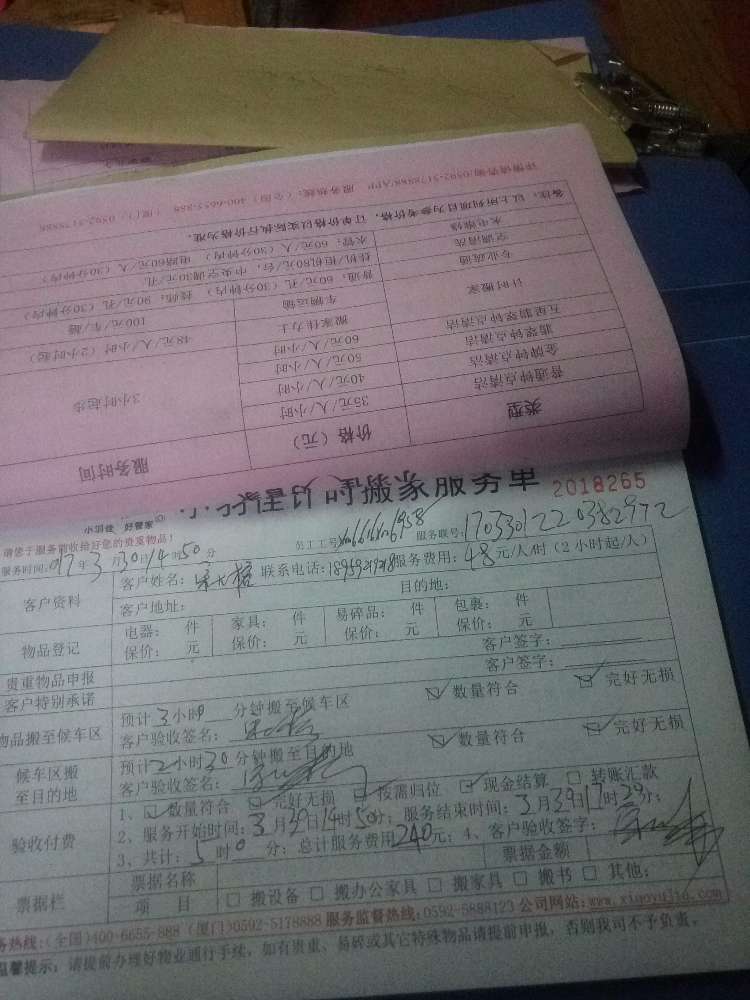 详情请咨询:0592-5178888/APP 服务热线:(全国)400-6655-888 (厦门)0592-5178888
备注:以上所列项目为参考价格,订单价格以实际执行价格为准。
水电维修 水管:60元/人(30分钟内) 电路60元/人(30分钟内)
空调清洗 挂机/柜机80元/台;中央空调30元/孔
专业疏通 普通:60元/孔(30分钟内) 90元/孔(30分钟内)
计时搬家 车辆运输 100元/车/趟
搬家佳力士 48元/人/小时(2小时起)
五星翡翠钟点清洁 60元/人/小时
翡翠钟点清洁 50元/人/小时
金牌钟点清洁 40元/人/小时
普通钟点清洁 35元/人/小时 3小时起步
类型 价格(元) 服务时间
时搬家服务单 2018265
小羽佳 好管家
请您于服务前收给好您的贵重物品! 员工工号: 服务联号:
服务时间: 17年3月30日14时50分
客户资料 客户姓名: 联系电话: 服务费用:48元/人/时(2小时起/人)
客户地址: 目的地:
物品登记 电器: 件 家具: 件 易碎品: 件 包裹: 件
保价: 元 保价: 元 保价: 元 保价: 元
贵重物品申报 客户签字:
客户特别承诺 客户签字:
物品搬至候车区 预计3小时 分钟搬至候车区 ☑数量符合 ☑完好无损
客户验收签名:
候车区搬至目的地 预计2小时30分钟搬至目的地 ☑数量符合 ☑完好无损
客户验收签名:
验收付费 1、☑数量符合 ☑完好无损 ☑按需归位 ☑现金结算 □转账汇款
2、服务开始时间:3月30日14时50分;服务结束时间:3月30日17时 分;
3、共计:5时0分;总计服务费用240元;4、客户验收签字:
票据栏 票据名称 票据金额
项目 □搬设备 □搬办公家具 □搬家具 □搬书 □其他:
务热线:(全国)400-6655-888 (厦门)0592-5178888 服务监督热线:0592-5888123 公司网站:www.xiaoyujia.com
温馨提示:请提前办理好物业通行手续,如有贵重、易碎或其它特殊物品请提前申报,否则我司不予负责。